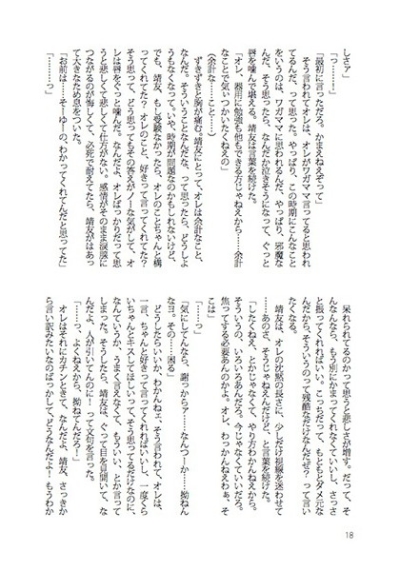 しさァ」
「っ……！」
「最初に言っただろ。かまえねえぞって」
そう言われてオレは、オレがワガママ言ってると思われ
てるんだ、って思った。やっぱり、この時期にこんなこと
をいうのは、ワガママに思われるんだ、やっぱり、邪魔な
んだ。そう思ったら、なんだか泣きそうになって、ぐっと
唇を噛んで堪える。靖友は言葉を続けた。
「オレ、器用に勉強も他もできる方じゃねえから……余計
なことで気いつかいたくねえの」
（余計な、こと……）
ずきずきと胸が痛む。靖友にとって、オレは余計なこと、
なんだ。そういうことなんだ。って思ったら、どうしよ
うもなくなって。いや、時期が問題なのかもしれないけど、
でも、靖友、もし受験なかったら、オレのことちゃんと構
ってくれてた？オレのこと、好きって言ってくれてた？
そう思って、どう思ってもその答えがノーな気がして、オ
レは唇をぐっと噛んだ。なんだよ、オレばっかりだって思
うと悲しくて悲しくて仕方がない。感情がそのまま涙腺に
つながるのが悔しくて、必死で耐えてたら、靖友がはあっ
て大きなため息をついた。
「お前は……そーゆーの、わかってくれてんだと思ってた」
「………っ」
呆れられてるのかって思うと悲しさが増す。だって、そ
んなんなら、もう別にかまってくれなくていいし、きちん
と振ってくれればいい。こっちだって、もともとダメ元な
んだから。そういうのって残酷なだけなんだぜ？って言い
たくなる。
靖友は、オレの沈黙の長さに、少しだけ視線を迷わせて
……あのさ、そうじゃねえんだけど、と言葉を続けた。
「したくねえ、とかじゃなくて、やり方わかんねえから。
そういうの、いろいろあんだろ。今じゃなくていいだろ。
焦ってする必要あんのかよ。オレ、わっかんねえわぁ、そ
こは」
「……っ」
「気にしてんなら、謝っからァ……なんつーか……拗ねん
なヨ。その……困る」
どうしたらいいか、わかんねェ。そう言われて、オレは、
一言、ちゃんと好きって言ってくれればいいし、一度くら
いちゃんとキスしてほしいって、そう思ってるだけなのに、
なんていうか、うまく言えなくて、もういい、とか言って
しまった。そうしたら、靖友は、ぐって目を見開いて、な
んだよ、人が引いてんのに！って文句を言った。
「……っ、よくねえから、拗ねてんだろ！」
オレはそれにカチンときて、なんだよ、靖友、さっきか
ら言い訳みたいなのばっかして、どうなんだよ！もうわか
18